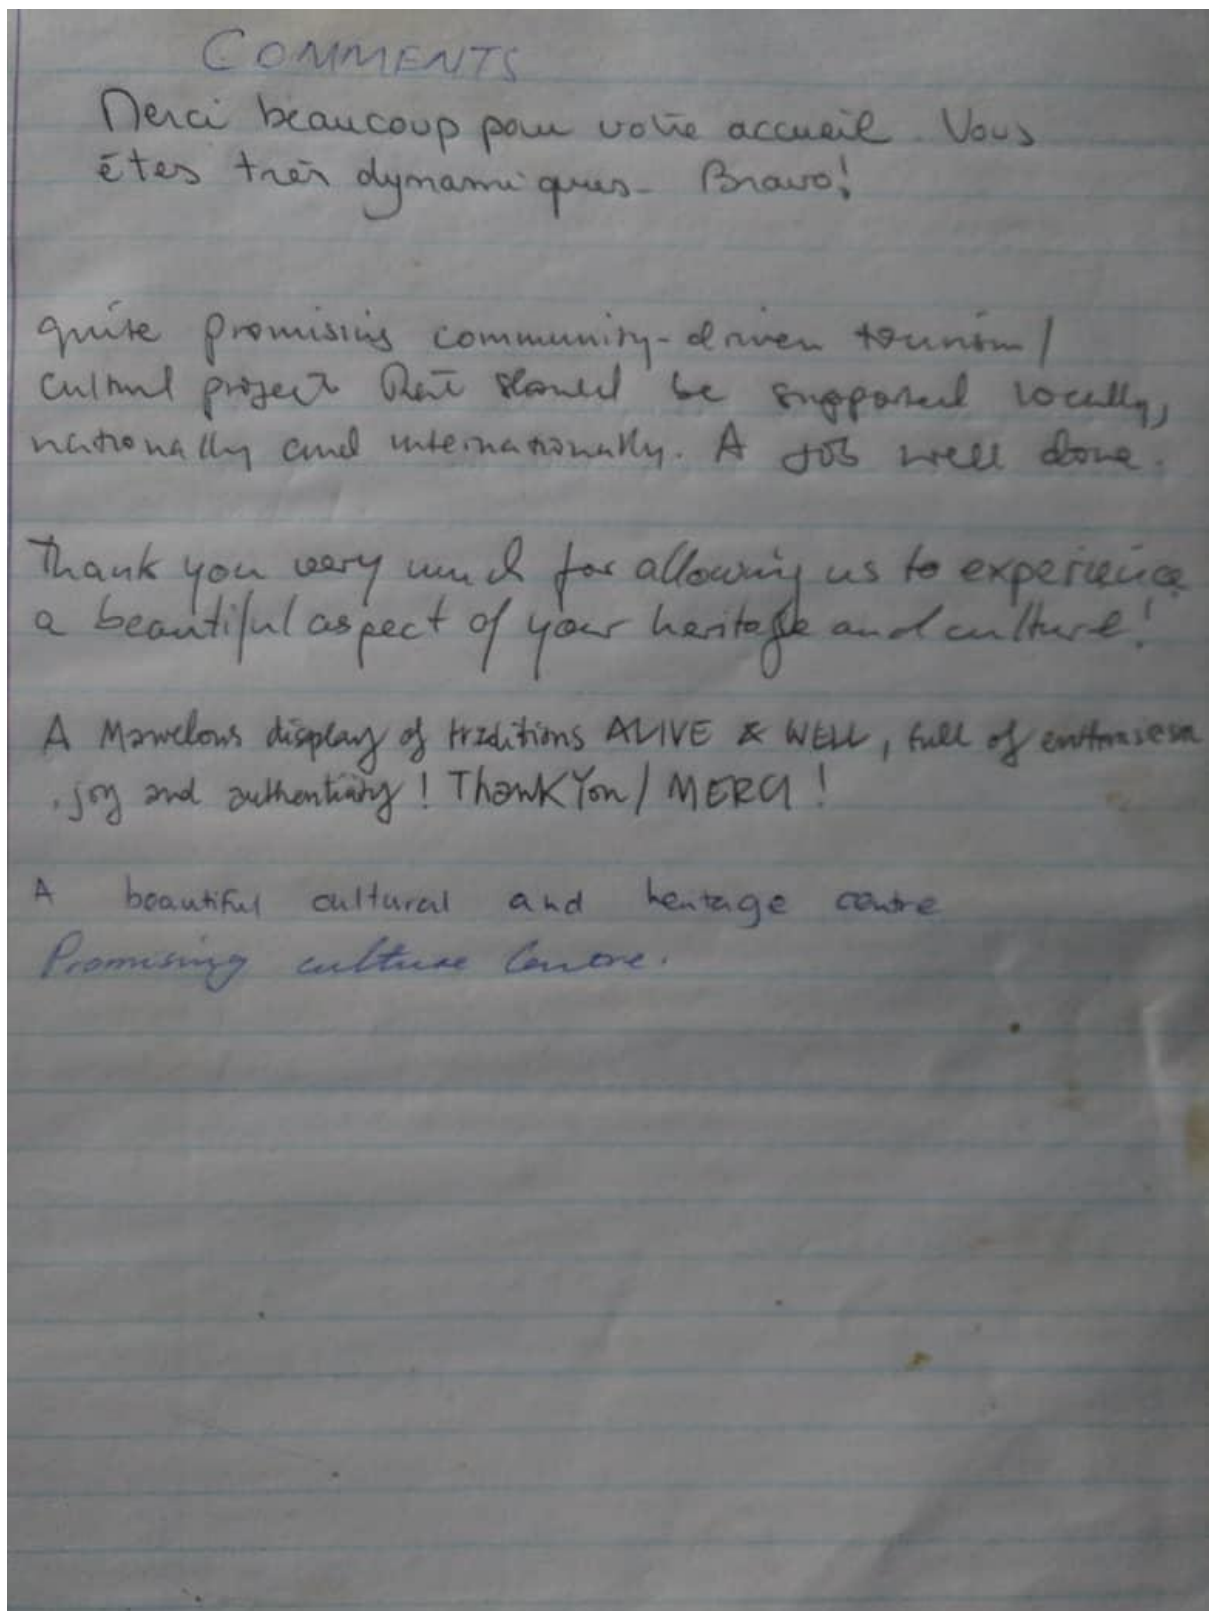 COMMENTS
Merci beaucoup pour votre accueil. Vous
êtes très dynamiques - Bravo!
quite promising community-driven tourism/
cultural project that should be supported locally,
nationally and internationally. A job well done.
Thank you very much for allowing us to experience
a beautiful aspect of your heritage and culture!
A Marvelous display of traditions ALIVE & WELL, full of enthusiasm
, joy and authenticity! Thank You / MERCI!
A beautiful cultural and heritage centre
Promising culture Centre.